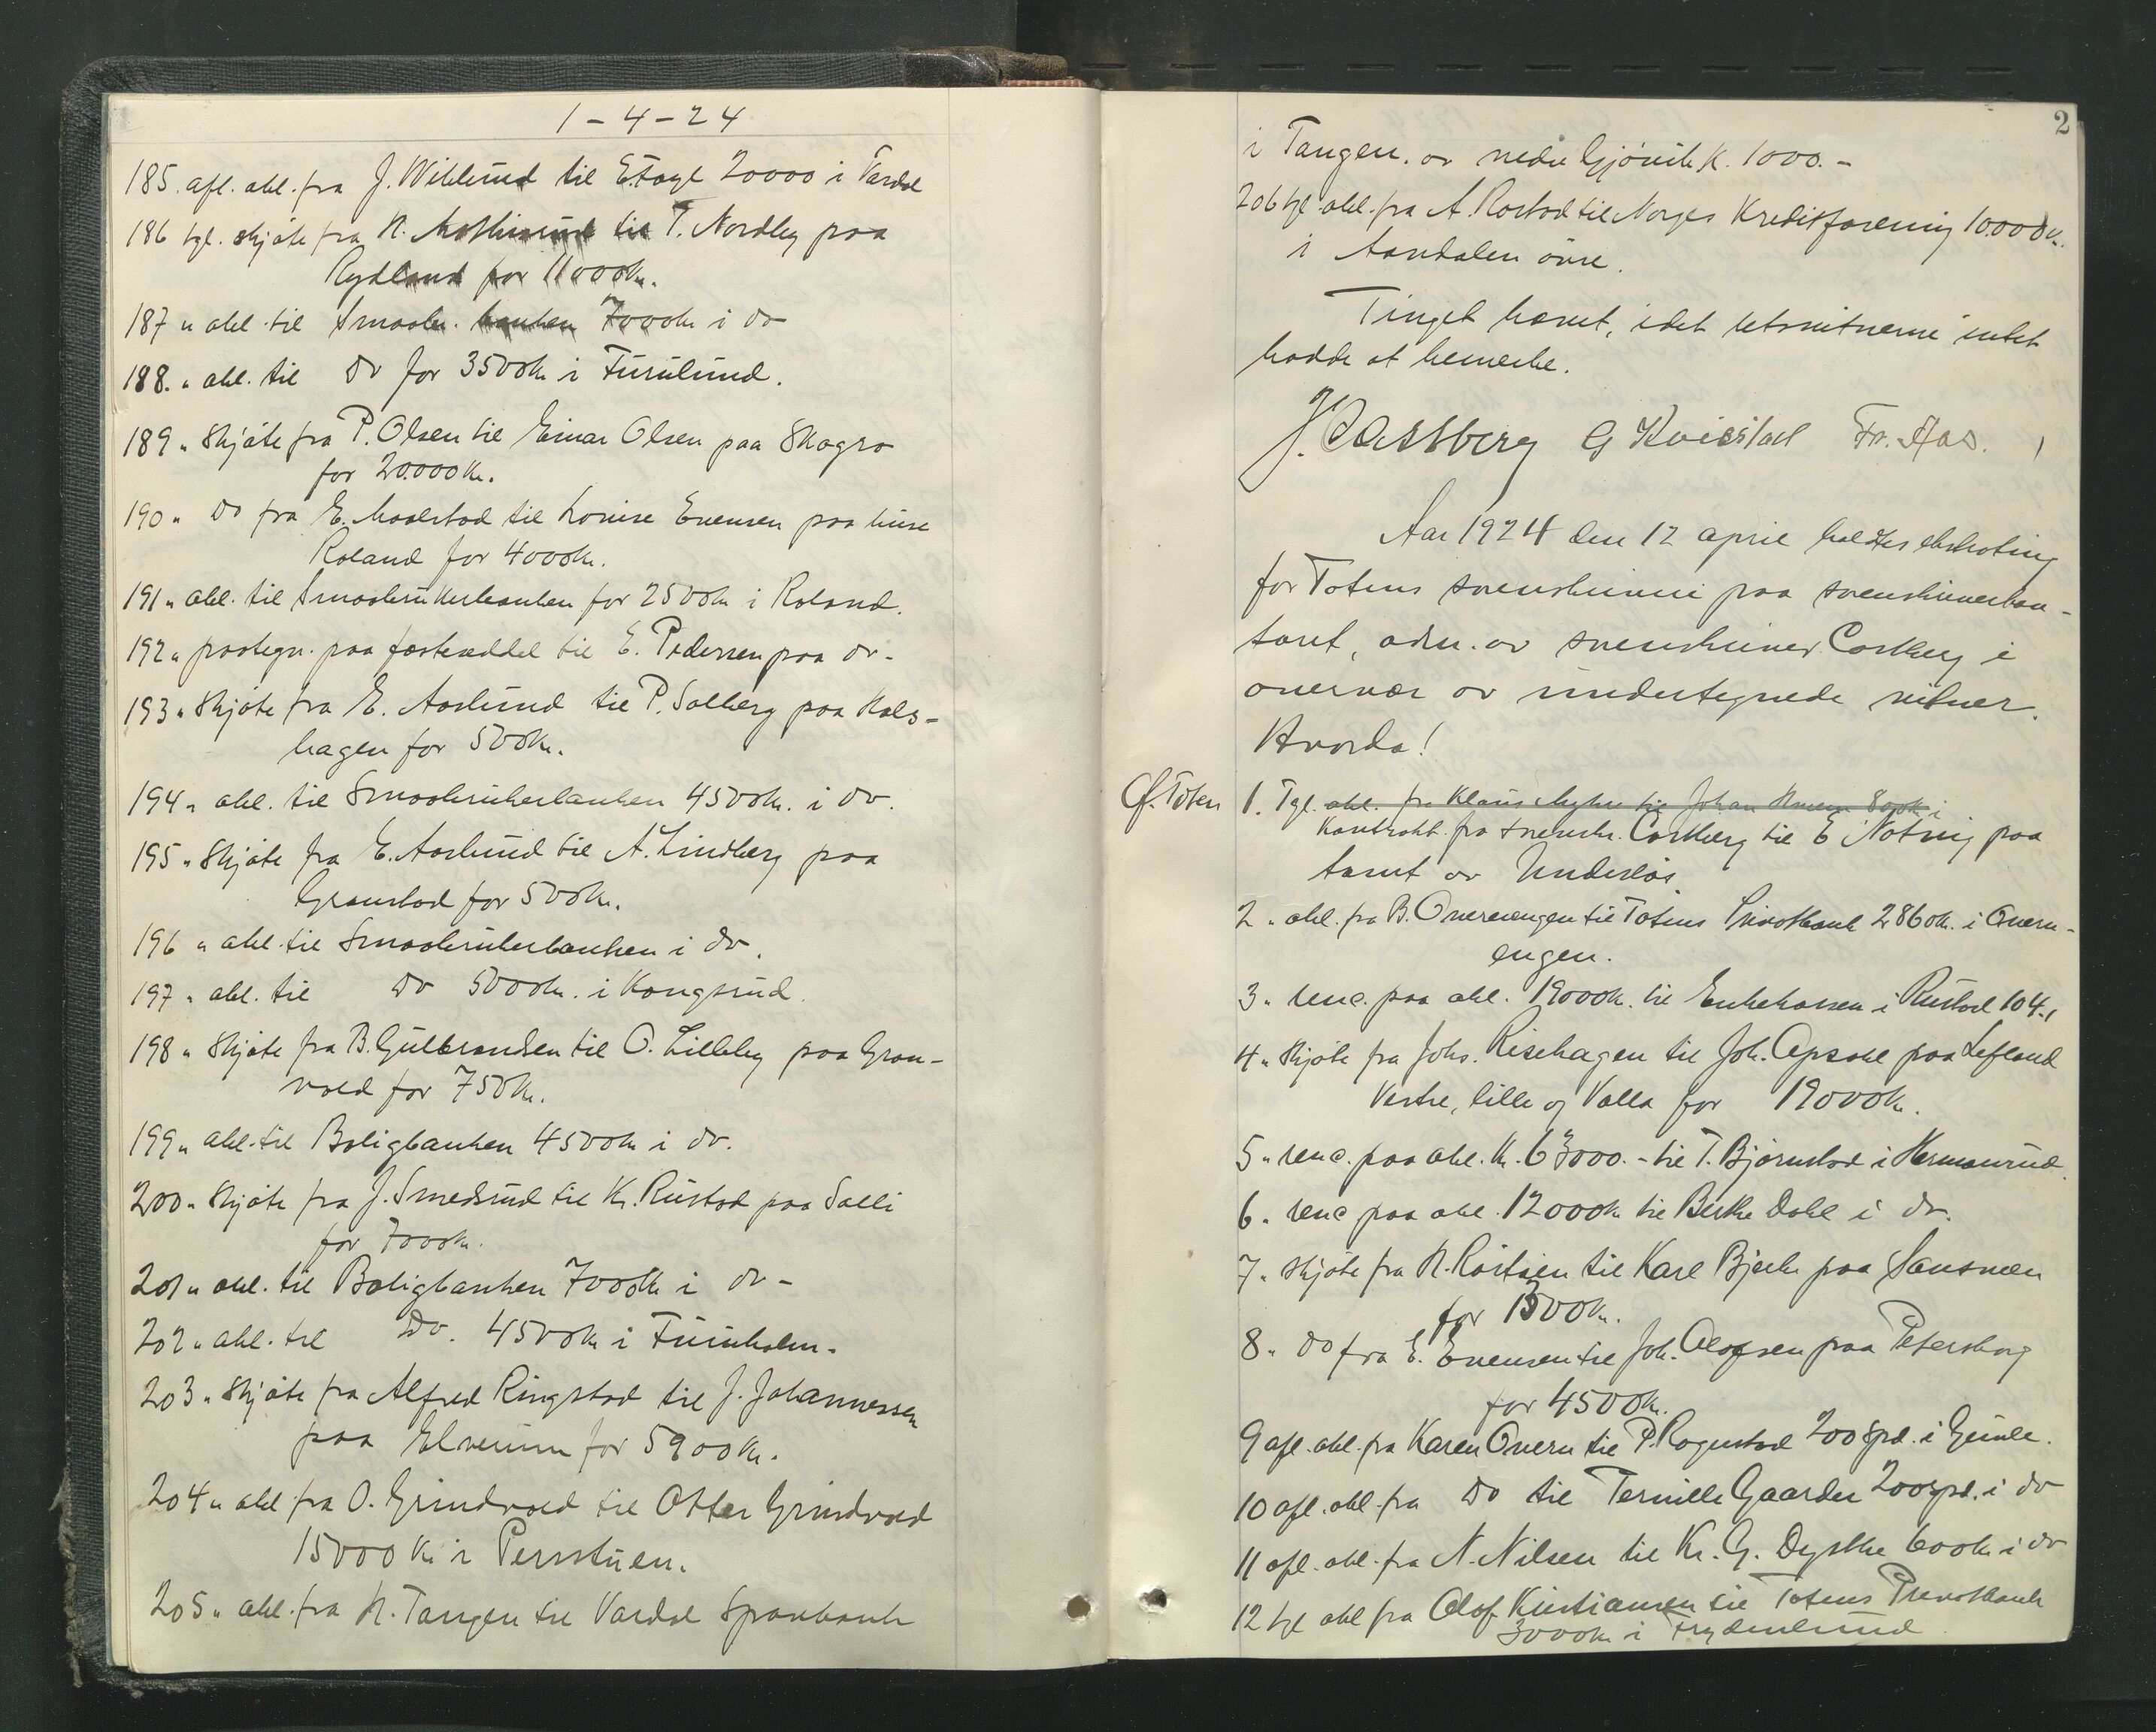 1-4-24
185. afl. obl. fra J. Wiklund til E. Fagl 20000 i Vardal
186 tgl. skjøte fra N. Mathisrud til T. Nordby paa
Rydland for 11000 kr.
187 " obl. til Smaabr. banken 7000 kr i do
188. " obl. til Do for 3500 kr i Furulund.
189 " Skjøte fra P. Olsen til Einar Olsen paa Skogro
for 20.000 kr.
190 " Do fra E. Maalstad til Louise Evensen paa huse
Roland for 4000 kr.
191 " obl. til Smaabrukerbanken for 2500 kr i Roland.
192 " paategn. paa festeseddel til E. Pedersen paa do -
193 " Skjøte fra E. Aaslund til P. Solberg paa Kals-
hagen for 500 kr.
194 " obl. til Smaabrukerbanken 4500 kr. i do.
195 " Skjøte fra E. Aaslund til A. Lindberg paa
Granstad for 500 kr.
196 " obl. til Smaabrukerbanken i do.
197 " obl. til Do 5000 kr. i Kongsrud.
198 " Skjøte fra B. Gulbrandsen til O. Lilleby paa Gran-
vold for 750 kr.
199 " obl. til Boligbanken 4500 kr i do.
200 " Skjøte fra J. Smedsrud til Kr. Rustad paa Solli
for 7000 kr.
201 " obl. til Boligbanken 7000 kr i do -
202 " obl. til Do. 4500 kr i Furuholm.
203 " Skjøte fra Alfred Ringstad til J. Johannessen
paa Elverum for 5900 kr.
204 " obl. fra O. Grindvold til Otter Grindvold
15000 kr i Persstuen.
205 " obl. fra N. Tangen til Vardal Sparebank
2
i Tangen. av nedre Gjøvik K. 1000.-
206 tgl. obl. fra A. Rostad til Norges Kreditforening 10.000 kr.
i Aandalen övre.
Tinget hævet, idet retsvitnerne intet
hadde at bemerke.
J. Castberg G Kvistad Fr. Aas.
Aar 1924 den 12 april holdtes ekstrating
for Totens sorenskriveri paa sorenskriverkon-
toret, adm. av sorenskriver Castberg i
overvær av undertegnede vitner.
Hvorda!
Ø. Toten 1. Tgl. obl. fra Klaus Myhre til Johan 800 kr i
Kontrakt fra sorenskr. Castberg til E Notvig paa
tomt av Underlös.
2 " obl. fra B. Overnengen til Totens Privatbank 2860 kr. i Overn-
engen.
3 " renc. paa obl. 19000 kr. til Enkekassen i Rustad 104,1
4 " Skjøte fra Johs. Risehagen til Joh. Opsahl paa Lefland
Vestre, lille og Valla for 19000 kr.
5 " renc. paa obl. kr. 63000.- til T. Bjørnstad i Hermanrud.
6 " renc paa obl. 12000 kr til Berthe Dahl i do.
7 " Skjøte fra N. Röisien til Karl Bjerke paa Sansveen
for 1500 kr.
8 " Do fra E. Evensen til Joh. Olafsen paa Petersborg
for 4500 kr.
9 afl. obl. fra Karen Overn til P. Rognstad 200 spd. i Gimle.
10 afl. obl. fra Do til Pernille Gaarder 200 spd. i do
11 afl. obl. fra N. Nilsen til Kr. G. Dysthe 600 kr i do
12 tgl obl fra Olof Kristiansen til Totens Privatbank
3000 kr i Frydenlund